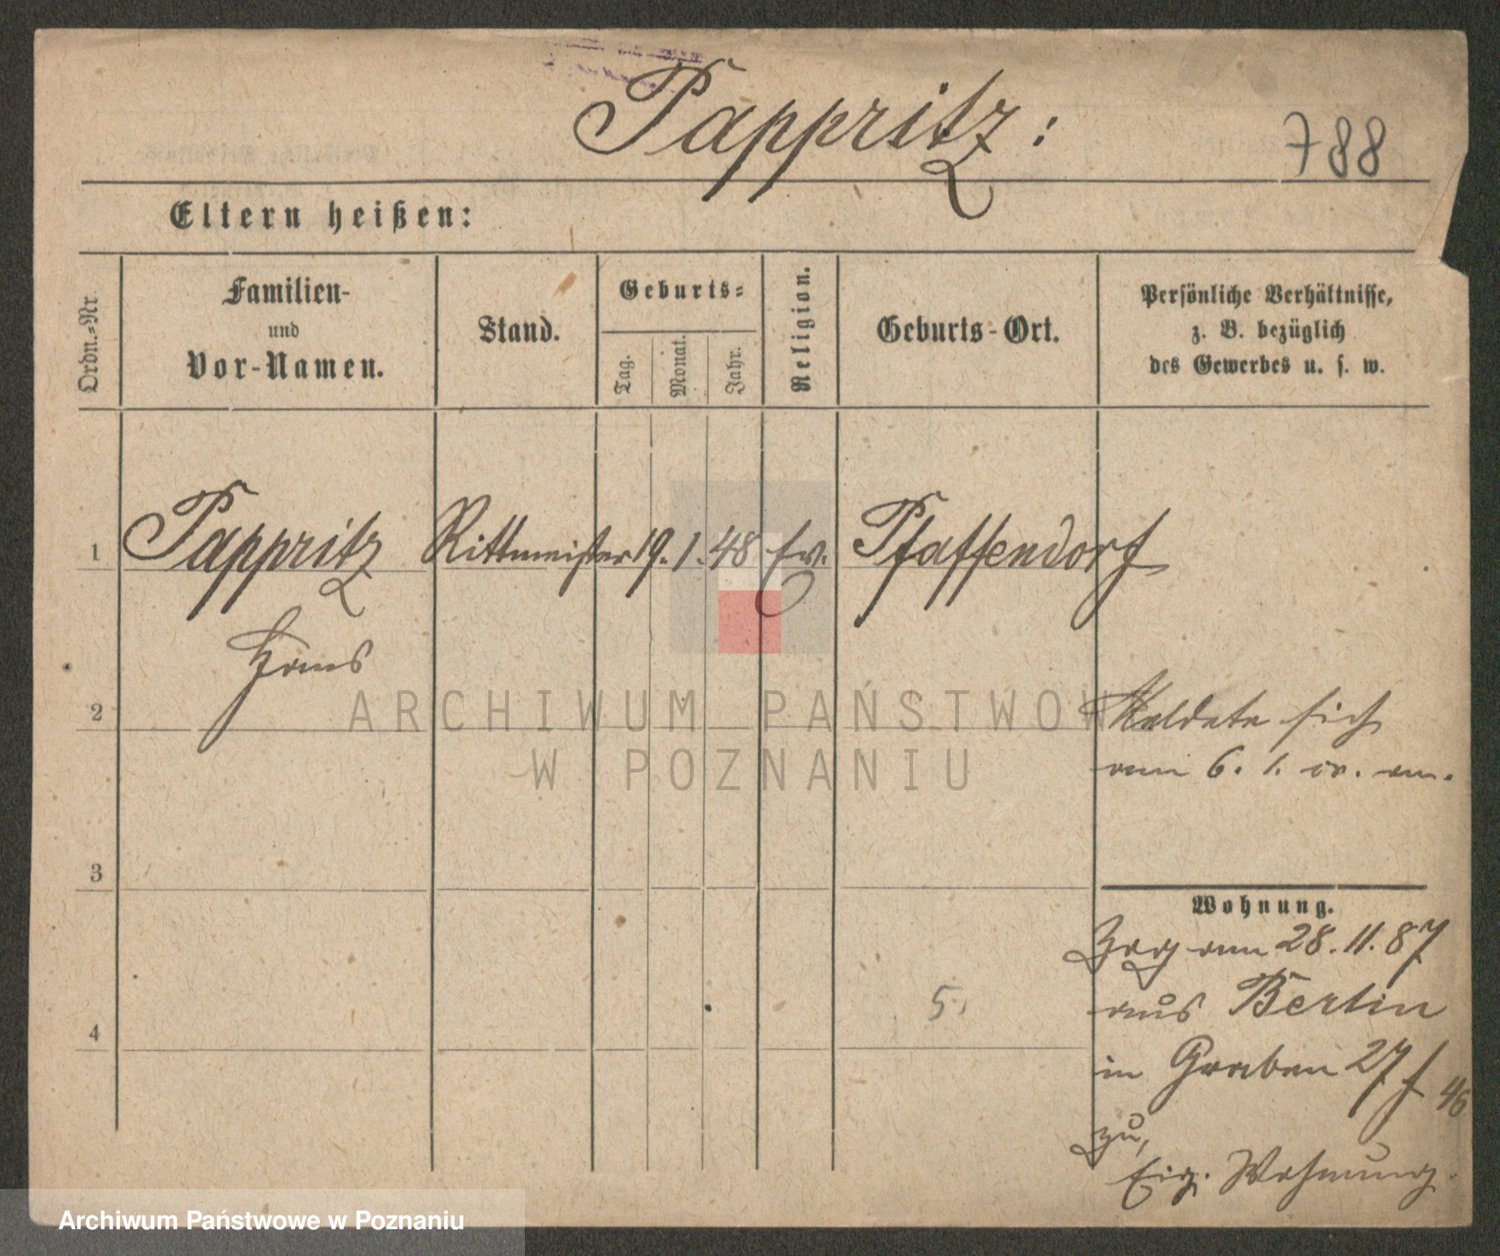 Pappritz:
788
Eltern heißen:
Ordn.=Nr.
Familien-
und
Vor-Namen.
Stand.
Geburts=
Tag.
Monat.
Jahr.
Religion.
Geburts-Ort.
Persönliche Verhältnisse,
z. B. bezüglich
des Gewerbes u. s. w.
1 Pappritz Rittmeister 19. 1. 48 Ev. Pfaffendorf
Hans
2
Meldete sich
am 6. 1. cr. an.
3
4
5.
Wohnung.
Zog am 28.11.87
aus Berlin
in Graben 27
zu,
Eig. Wohnung.
ARCHIWUM PAŃSTWOW
W POZNANIU
Archiwum Państwowe w Poznaniu